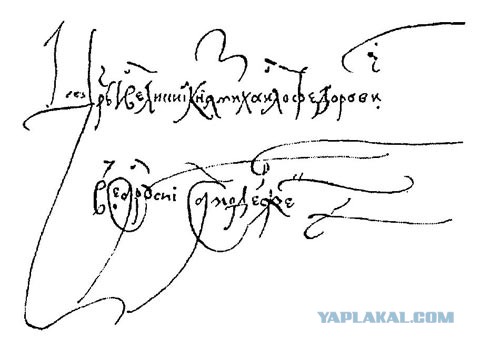 Црь И великиі Кнѧзь михаило федорович
Всеа рꙋсиі самодержец
YAPLAKAL.COM